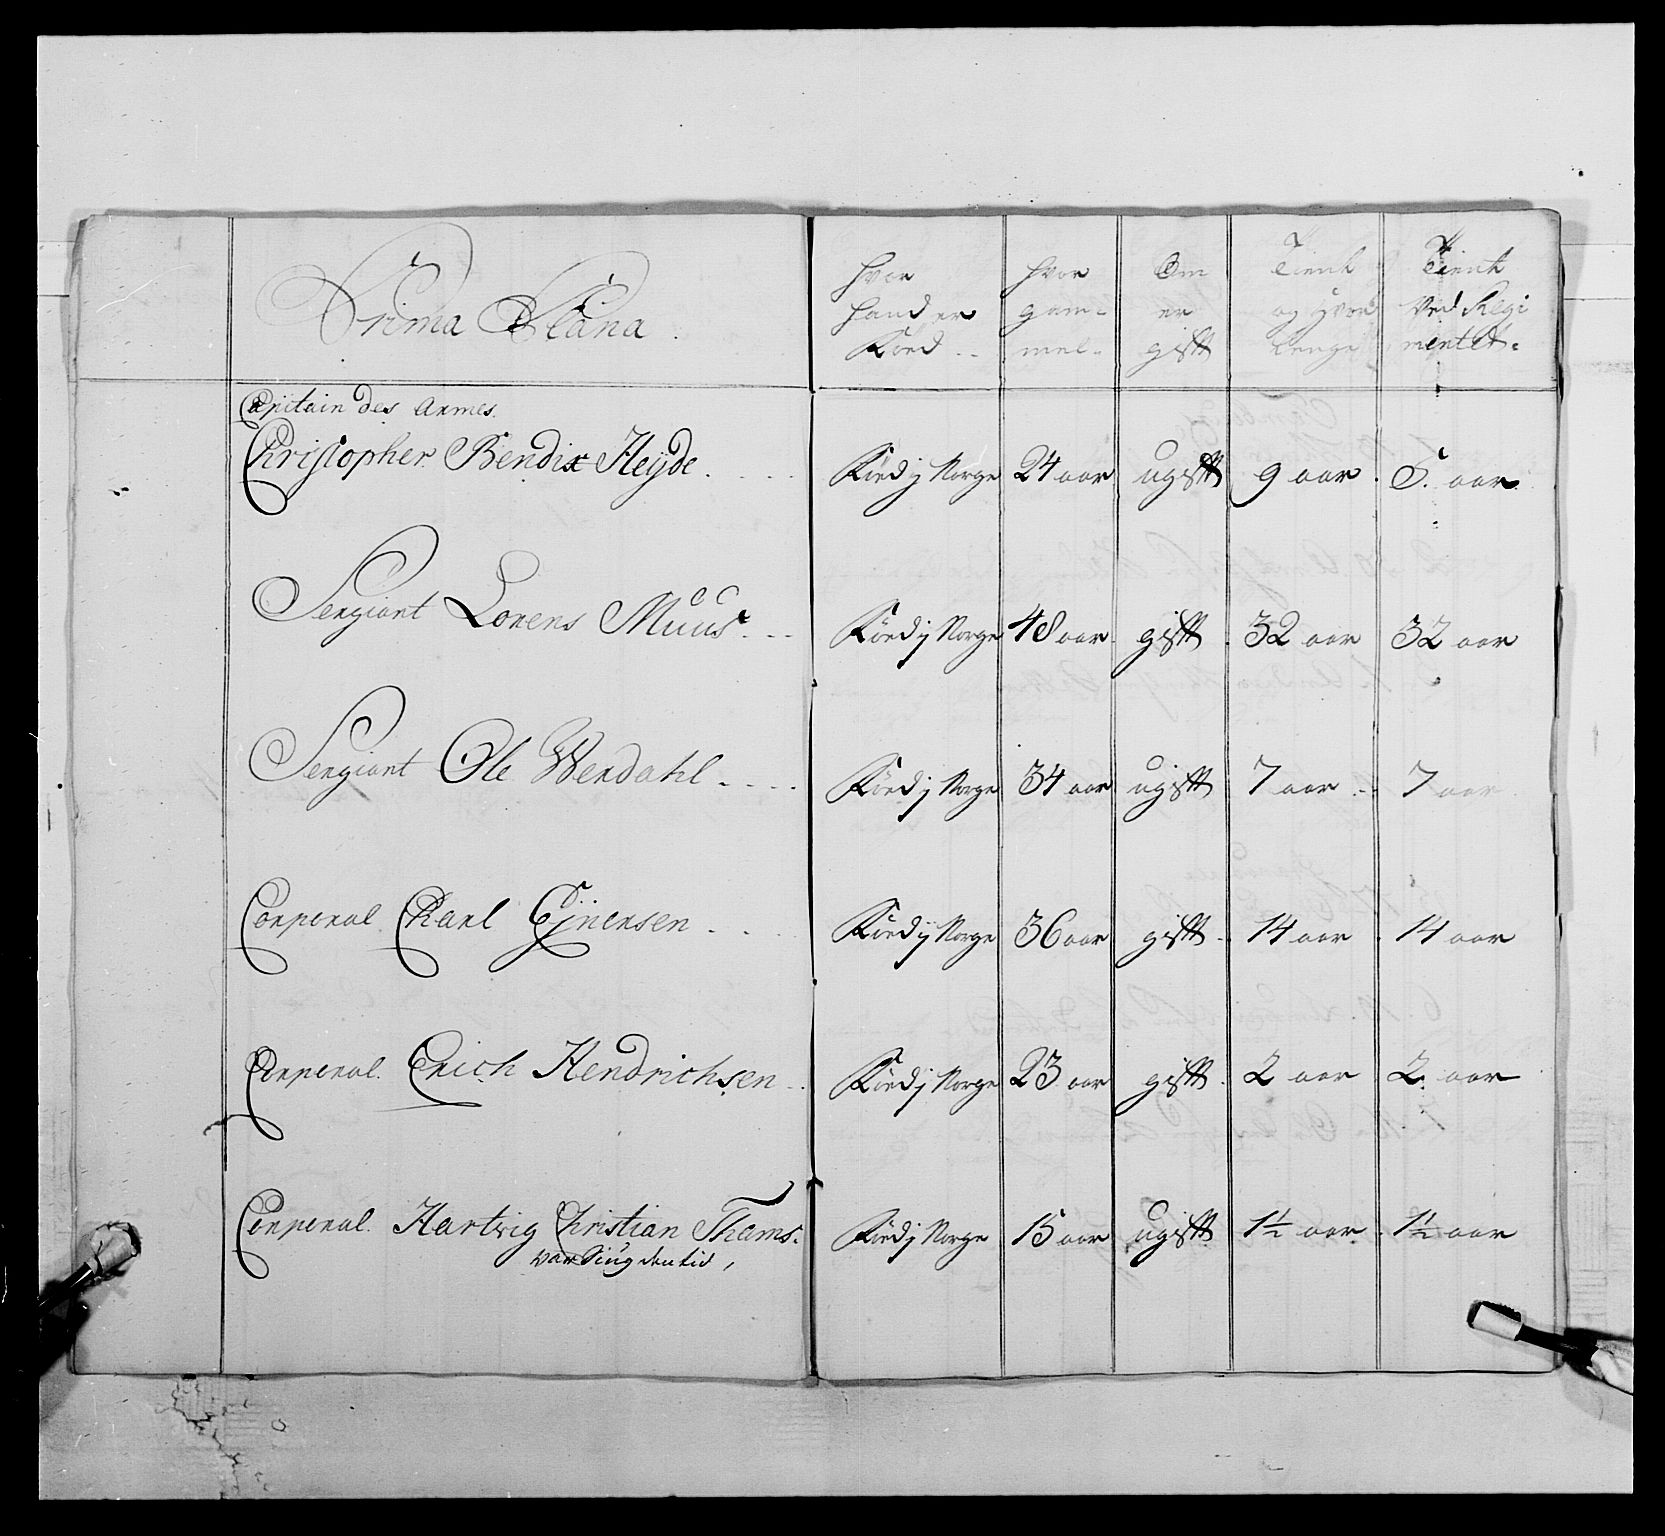 Prima Plana.
Hvor hand er Föed..
Hvor gam= mel=
Om er gift
Tient og Hvor lenge
Tient ved Regi mentet=
Capitain des Armes.
Christopher Bendix Heÿde. Föed j Norge 24 aar ugift 9 aar. 5. aar.
Sergiant Lorens Muus. Föed j Norge 48 aar. gift. 32 aar 32 aar
Sergiant Ole Werdahl. Föed j Norge 34 aar ugift 7 aar 7 aar
Corporal Carl Ejnersen. Föed j Norge 36 aar gift 14 aar. 14 aar
Corporal. Erich Hendrichsen Föed j Norge 23 aar gift. 2 aar 2. aar
Corporal. Hartvig Christian Thams. Föed j Norge 15 aar ugift 1½ aar. 1½ aar
var Siug den tid,